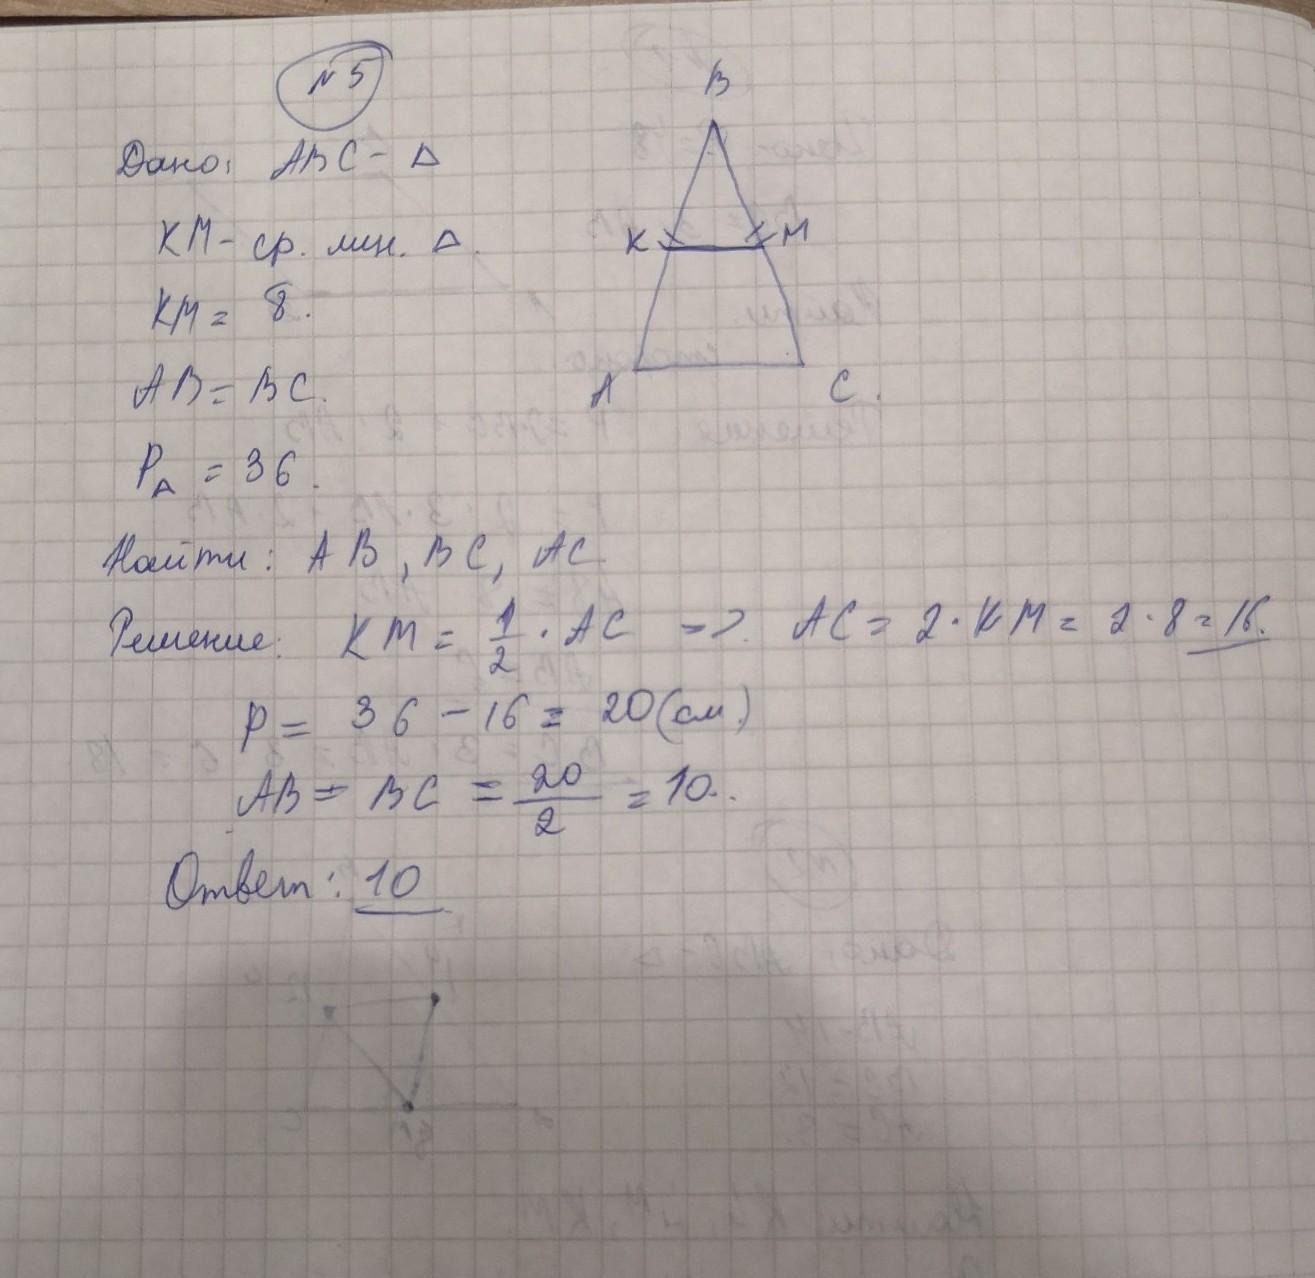 N 5
B
Дано: ABC - Δ
KM - ср. лин. Δ.
K M
KM = 8.
AB = BC.
A C.
PΔ = 36.
Найти: AB, BC, AC
Решение: KM = 1/2 · AC => AC = 2 · KM = 2 · 8 = 16.
P = 36 - 16 = 20 (см)
AB = BC = 20/2 = 10.
Ответ: 10